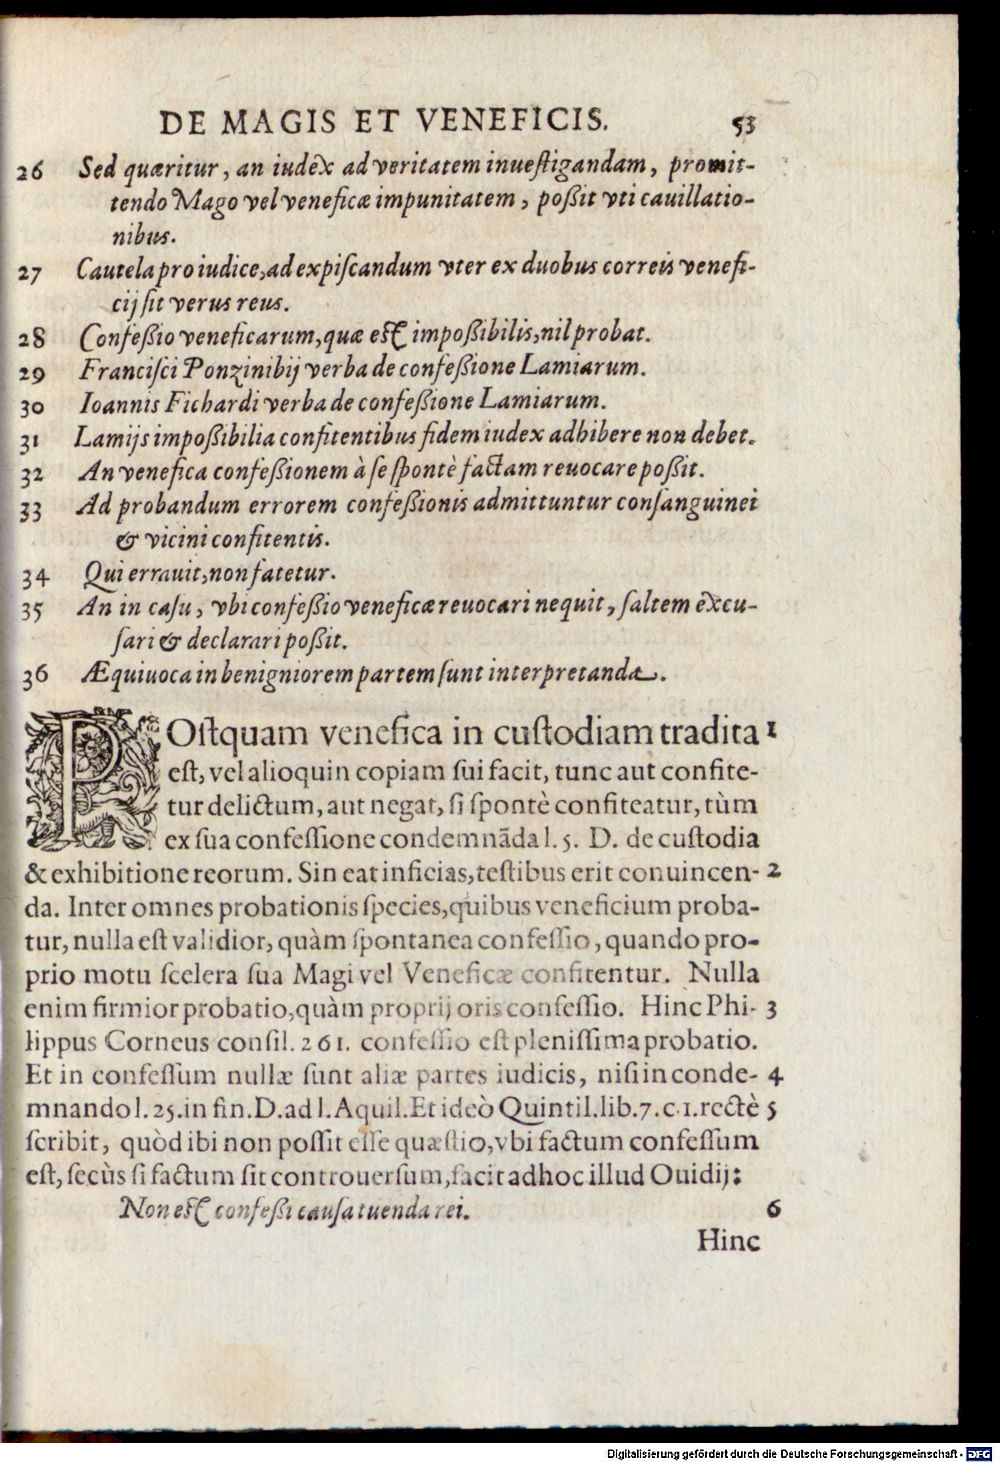 DE MAGIS ET VENEFICIS. 53
26 Sed quæritur, an iudex ad veritatem inuestigandam, promit-
tendo Mago vel veneficæ impunitatem, poßit vti cauillatio-
nibus.
27 Cautela pro iudice, ad expiscandum vter ex duobus correis venefi-
cij sit verus reus.
28 Confeßio veneficarum, quæ est impoßibilis, nil probat.
29 Francisci Ponzinibij verba de confeßione Lamiarum.
30 Ioannis Fichardi verba de confeßione Lamiarum.
31 Lamijs impoßibilia confitentibus fidem iudex adhibere non debet.
32 An venefica confeßionem à se spontè factam reuocare poßit.
33 Ad probandum errorem confeßionis admittuntur consanguinei
& vicini confitentis.
34 Qui errauit, non fatetur.
35 An in casu, vbi confeßio veneficæ reuocari nequit, saltem excu-
sari & declarari poßit.
36 Æquiuoca in benigniorem partem sunt interpretanda.
POstquam venefica in custodiam tradita 1
est, vel alioquin copiam sui facit, tunc aut confite-
tur delictum, aut negat, si spontè confiteatur, tùm
ex sua confessione condemnãda l. 5. D. de custodia
& exhibitione reorum. Sin eat inficias, testibus erit conuincen- 2
da. Inter omnes probationis species, quibus veneficium proba-
tur, nulla est validior, quàm spontanea confessio, quando pro-
prio motu scelera sua Magi vel Veneficæ confitentur. Nulla
enim firmior probatio, quàm proprij oris confessio. Hinc Phi- 3
lippus Corneus consil. 261. confessio est plenissima probatio.
Et in confessum nullæ sunt aliæ partes iudicis, nisi in conde- 4
mnando l. 25. in fin. D. ad l. Aquil. Et ideò Quintil. lib. 7. c. 1. rectè 5
scribit, quòd ibi non possit esse quæstio, vbi factum confessum
est, secùs si factum sit controuersum, facit ad hoc illud Ouidij:
Non est confeßi causa tuenda rei. 6
Hinc
Digitalisierung gefördert durch die Deutsche Forschungsgemeinschaft - DFG